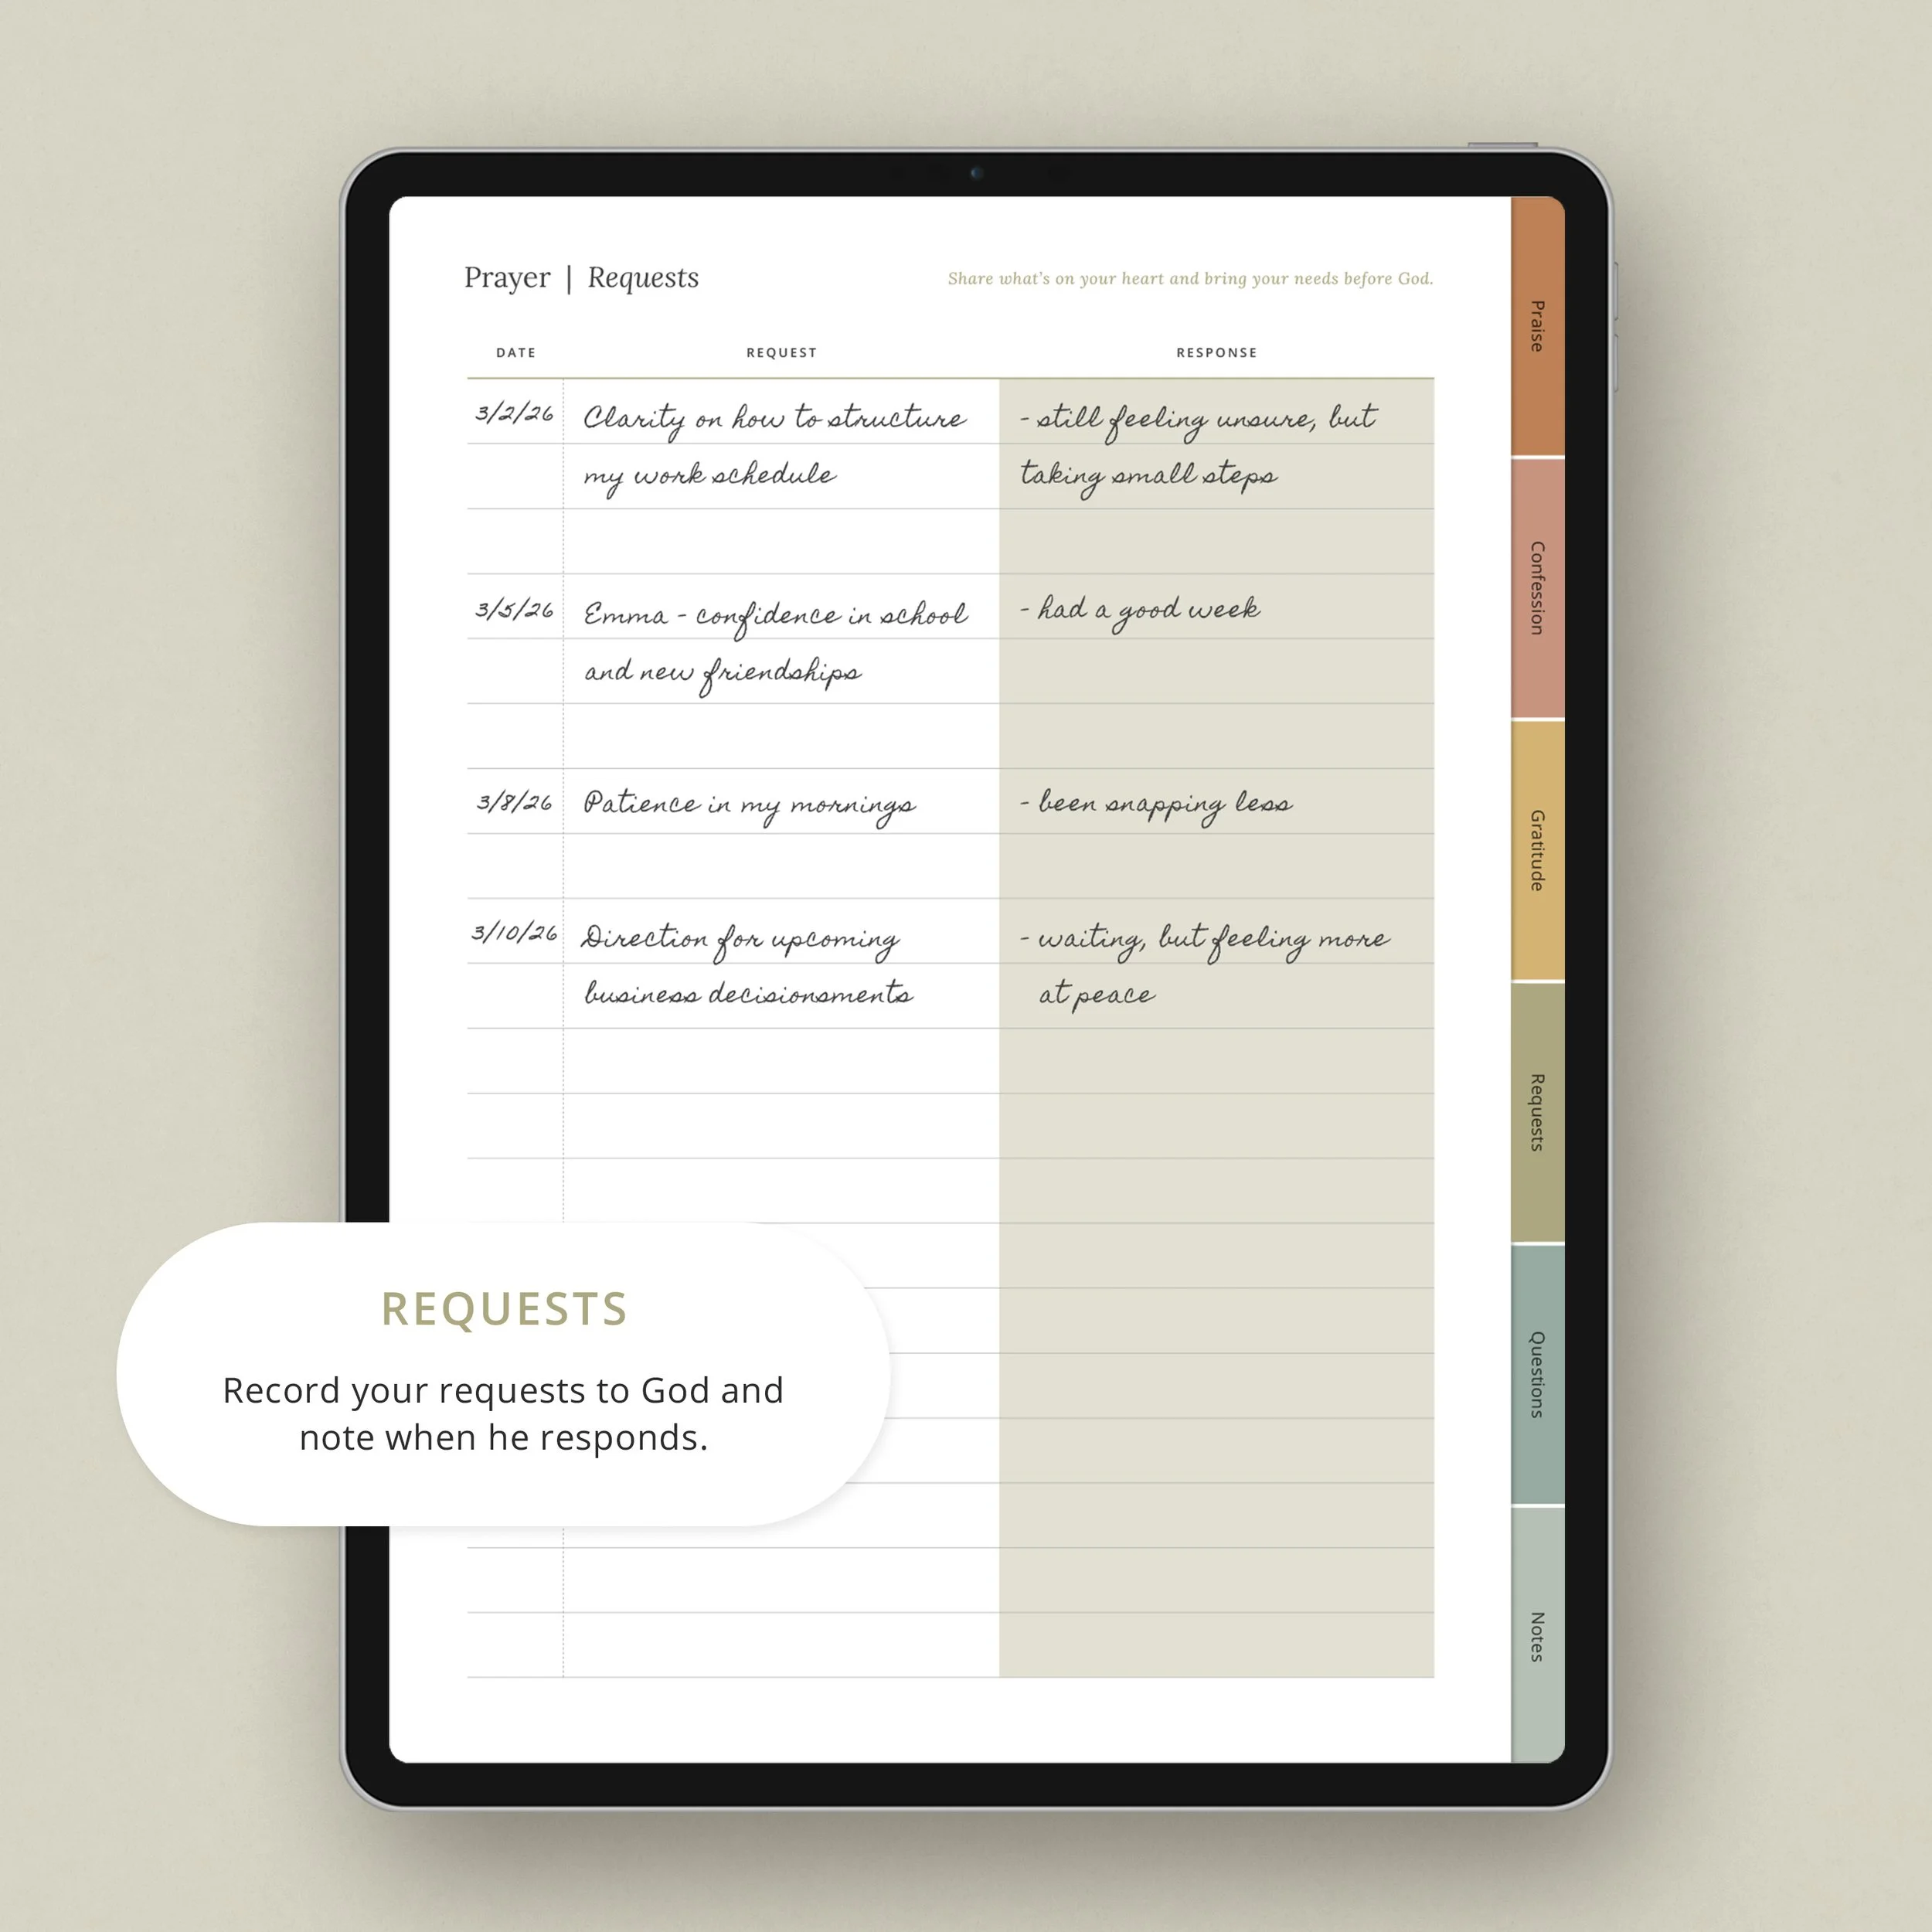 Prayer | Requests
Share what's on your heart and bring your needs before God.
DATE
REQUEST
RESPONSE
3/2/26 Clarity on how to structure - still feeling unsure, but
my work schedule taking small steps
3/5/26 Emma - confidence in school - had a good week
and new friendships
3/8/26 Patience in my mornings - been snapping less
3/10/26 Direction for upcoming - waiting, but feeling more
business decisionsments at peace
REQUESTS
Record your requests to God and
note when he responds.
Praise
Confession
Gratitude
Requests
Questions
Notes